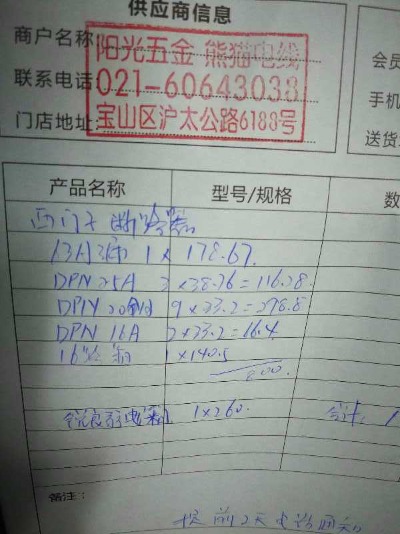 供应商信息
商户名称 阳光五金 熊猫电线 会员
联系电话 021-60643038 手机
门店地址 宝山区沪太公路6188号 送货
产品名称 型号/规格 数
西门子断路器
1 x 178.67.
DPN 25A 3 x 38.76 = 116.28
DPN 20 9 x 33.2 = 298.8
DPN 16A 2 x 33.2 = 66.4
16 1 x 140.5
800.
弱电箱 1 x 260. 合计
备注:
提前2天电话通知